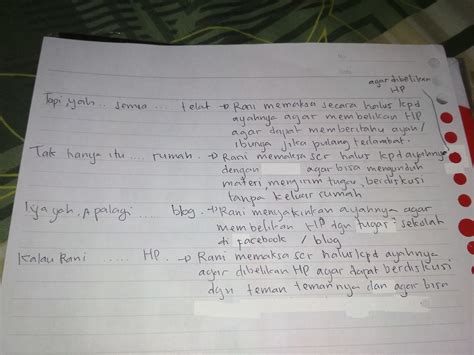 agar dibelikan
HP
Tapi, yah.. semua .... telat → Rani memaksa secara halus kpd
ayahnya agar membelikan HP
agar dapat memberitahu ayah/
ibunya jika pulang terlambat.
Tak hanya itu .... rumah. → Rani memaksa scr halus kpd ayahnya
dengan agar bisa mengunduh
materi mengirim tugas, berdiskusi
tanpa keluar rumah
Iya yah, Apalagi .... blog. → Rani menyakinkan ayahnya agar
membelikan HP dgn tugas sekolah
di Facebook / blog
Kalau Rani ..... HP. → Rani memaksa scr halus kpd ayahnya
agar dibelikan HP agar dapat berdiskusi
dgn teman temannya dan agar bisa